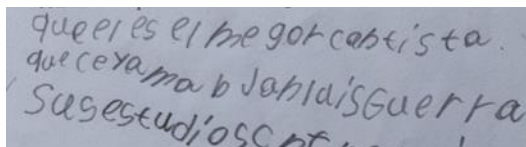 que el es el megor cantista.
que ceyama b Janluis Guerra
Sus estudios